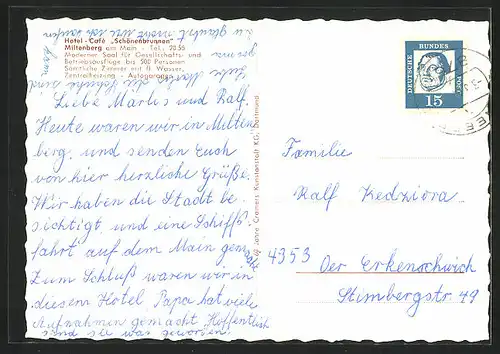 Hotel-Café "Schönenbrunnen"
Miltenberg am Main - Tel.: 2036
Moderner Saal für Gesellschafts- und
Betriebsausflüge bis 500 Personen
Sämtliche Zimmer mit fl. Wasser,
Zentralheizung - Autogaragen
Liebe Marlis und Ralf,
Heute waren wir in Milten
berg, und senden Euch
von hier herzliche Grüße.
Wir haben die Stadt be
sichtigt, und eine Schiffs
fahrt auf dem Main gemacht
Zum Schluß waren wir in
diesem Hotel. Papa hat viele
Aufnahmen gemacht. Hoffentlich
sind sie was geworden.
Cramers Kunstanstalt KG, Dortmund
DEUTSCHE BUNDESPOST
15
Familie
Ralf Kedziora
4353 Oer Erkenschwick
Stimbergstr. 49